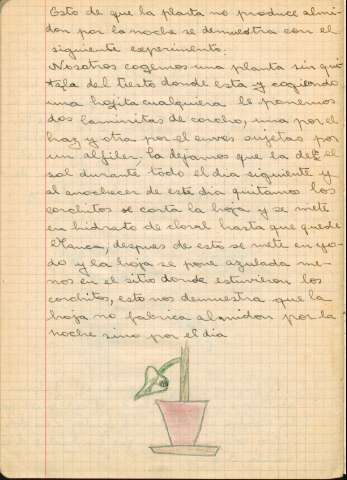 Esto de que la planta no produce almi-
don por la noche se demuestra con el
siguiente experimento.
Nosotros cogemos una planta sin qui-
tarla del tiesto donde está y cogiendo
una hojita cualquiera le ponemos
dos laminitas de corcho, una por el
haz y otra por el enves sujetas por
un alfiler, la dejamos que la de el
sol durante todo el dia siguiente y
al anochecer de este dia quitamos los
corchitos se corta la hoja y se mete
en hidrato de cloral hasta que quede
blanca; despues de esto se mete en yo-
do y la hoja se pone azulada me-
nos en el sitio donde estuvieron los
corchitos, esto nos demuestra que la
hoja no fabrica almidon por la
noche sino por el dia